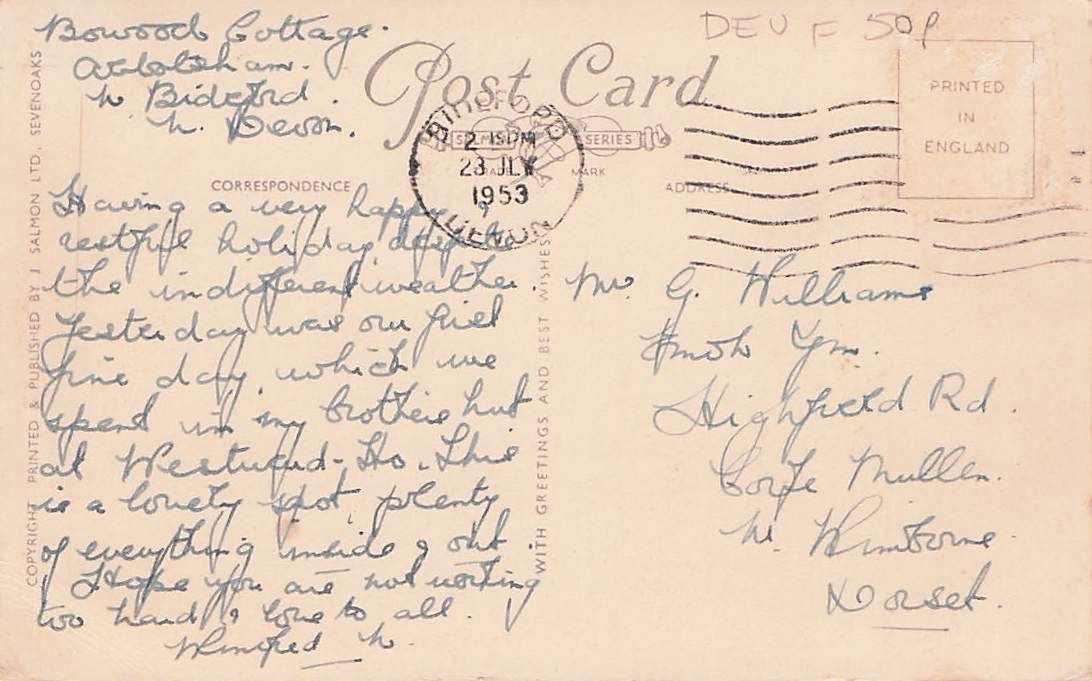 Bowood Cottage.
Abbotsham.
Nr Bideford.
N. Devon.
DEV F 50p
Post Card
SALMON SERIES
TRADE MARK
BIDEFORD
DEVON
2 15PM
23 JLY
1953
PRINTED
IN
ENGLAND
CORRESPONDENCE
ADDRESS
Having a very happy &
restful holiday despite
the indifferent weather.
Yesterday was our first
fine day, which we
spent in my brothers hut
at Westward-Ho. This
is a lovely spot, plenty
of everything inside & out
Hope you are not working
too hard, & love to all.
Winifred W.
Mr G. Williams
Emoh
Highfield Rd.
Corfe Mullen.
Nr Wimborne.
Dorset.
COPYRIGHT PRINTED & PUBLISHED BY J. SALMON LTD., SEVENOAKS
WITH GREETINGS AND BEST WISHES